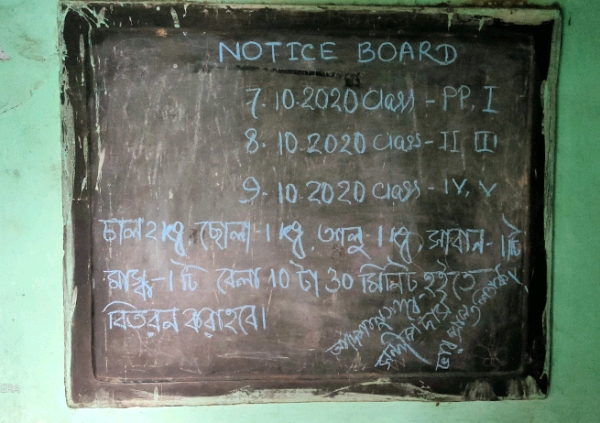 NOTICE BOARD
7.10.2020 Class - PP, I
8.10.2020 Class - II III
9.10.2020 Class - IV, V
চাল 2 kg, ছোলা - 1 kg, আলু - 1 kg, সাবান - 1 টি
মাস্ক - 1 টি বেলা 10 টা 30 মিনিট হইতে
বিতরন করা হবে।